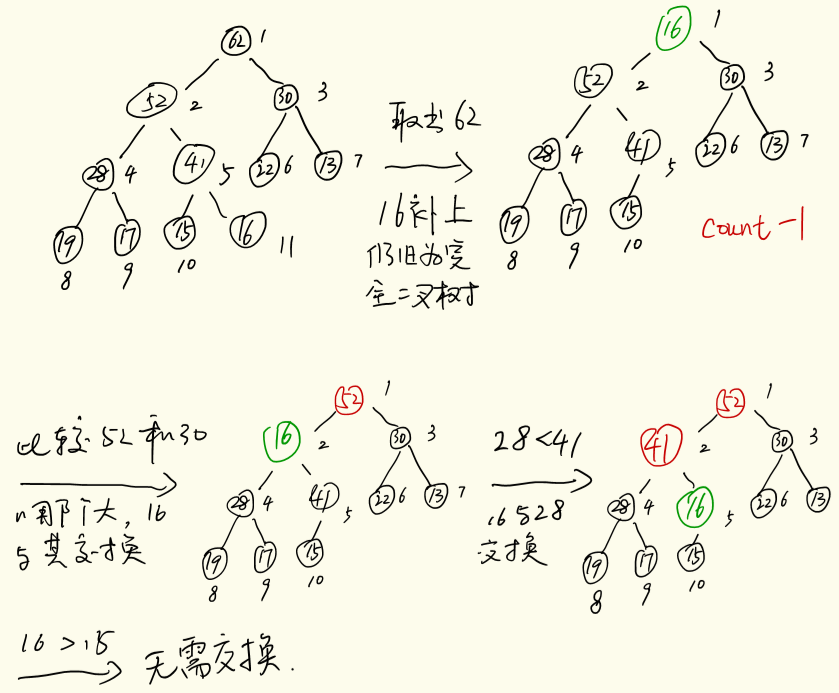 62 1
52 2
30 3
28 4
41 5
22 6
13 7
19 8
17 9
15 10
16 11
取出 62
16补上
仍旧为完
全二叉树
16 1
52 2
30 3
28 4
41 5
22 6
13 7
19 8
17 9
15 10
count-1
比较 52 和 30
哪个大, 16
与其交换
52 1
16 2
30 3
28 4
41 5
22 6
13 7
19 8
17 9
15 10
28<41
16与28
交换
52 1
41 2
30 3
28 4
16 5
22 6
13 7
19 8
17 9
15 10
16 >15
无需交换.